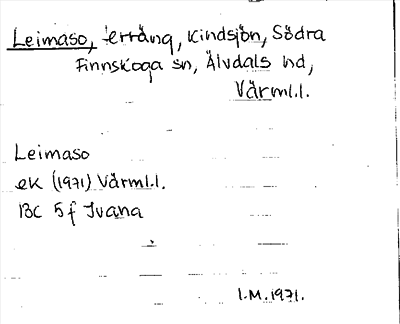 Leimaso, terräng, Kindsjön, Södra
Finnskoga sn, Älvdals hd,
Värml.l.
Leimaso
ek (1971) Värml.l.
13C 5f Juana
I.M. 1971.